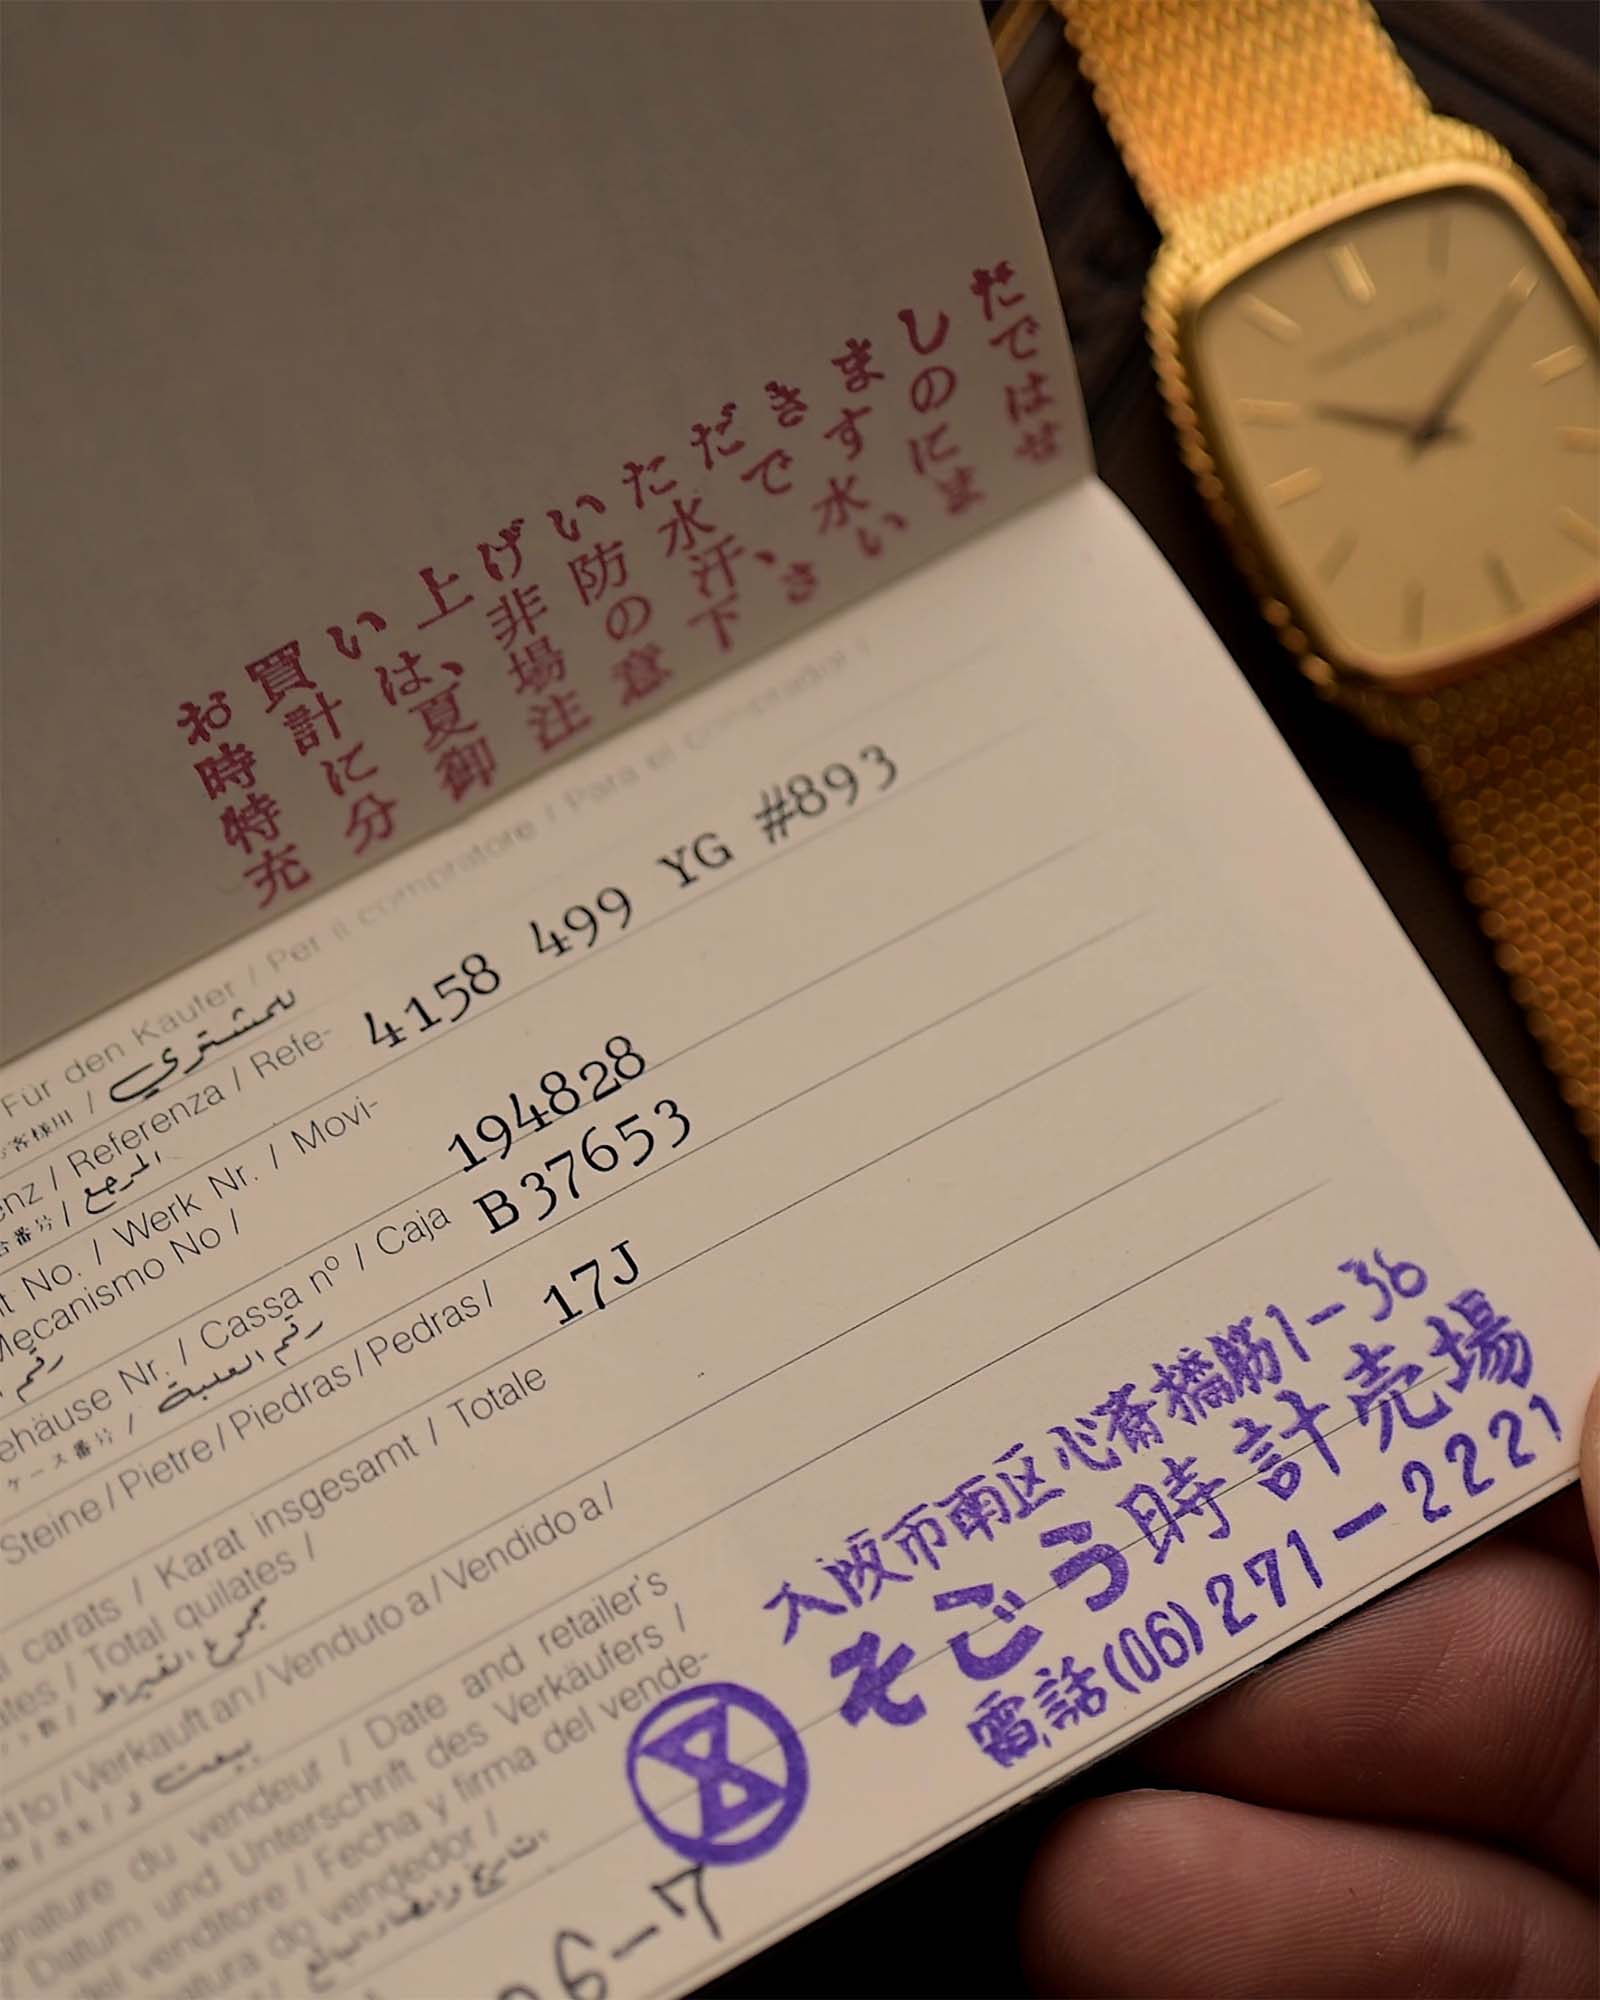 お買い上げいただきました
時計は、非防水ですので
特に夏場の汗、水には
充分御注意下さいませ
Für den Käufer / Per il compratore / Para el comprador /
お客様用 / للمشتري
enz / Referenza / Refe- 4158 499 YG #893
番号 / المرجع
t No. / Werk Nr. / Movi-
Mecanismo No / 194828
رقم
ehäuse Nr. / Cassa nº / Caja B37653
ケース番号 / رقم العلبة
Steine / Pietre / Piedras / Pedras / 17J
carats / Karat insgesamt / Totale
ates / Total quilates /
مجموع القيراط
d to / Verkauft an / Venduto a / Vendido a /
بيعت
gnature du vendeur / Date and retailer's
/ Datum und Unterschrift des Verkäufers /
del venditore / Fecha y firma del vende-
natura do vendedor /
大阪市南区心斎橋筋1-36
そごう時計売場
電話(06)271-2221
06-7